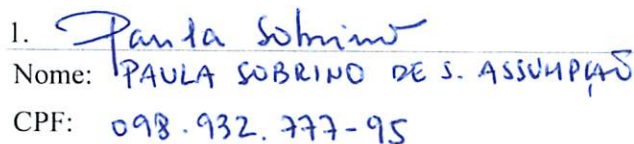 1. Paula Sobrino
Nome: PAULA SOBRINO DE S. ASSUMPÇÃO
CPF: 098.932.777-95